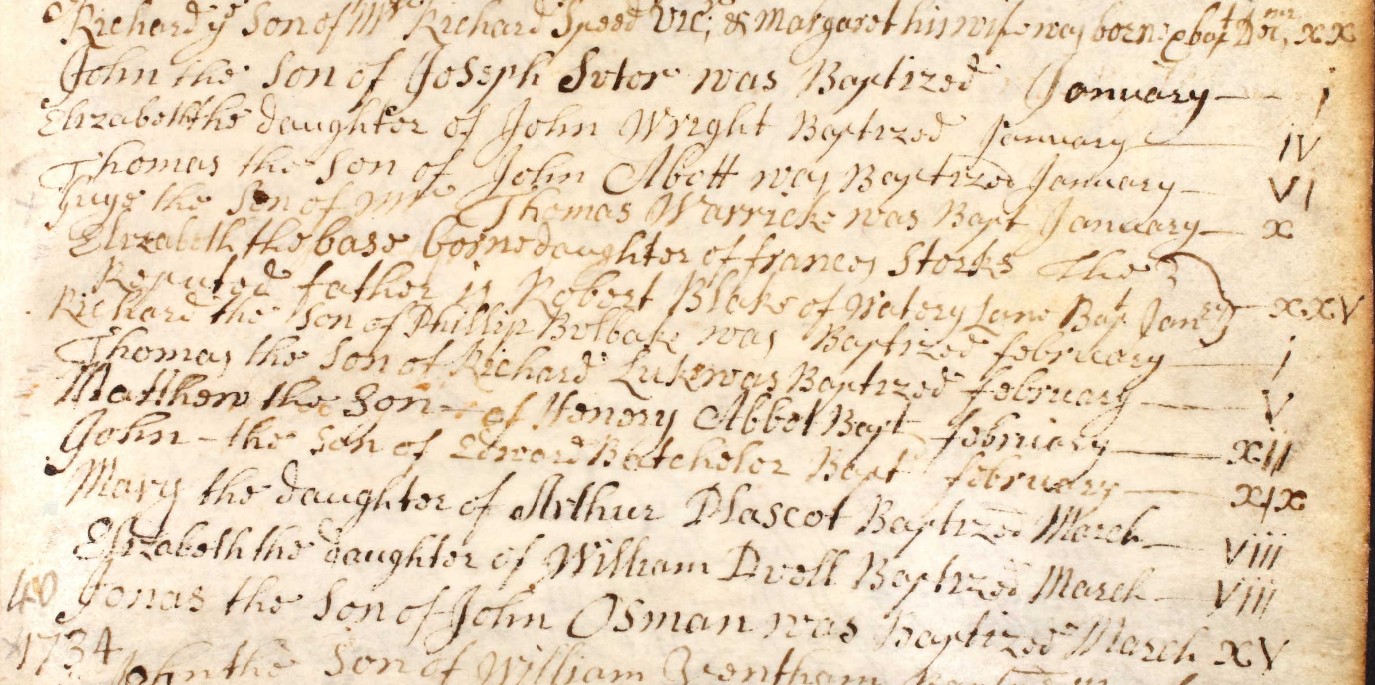 Richard ye Son of Mr Richard Speed Vic; & Margaret his wife was borne & bapt xx
John the Son of Joseph Suter was Baptized January j
Elizabeth the daughter of John Wright Baptized January IV
Thomas the Son of John Abott was Baptized January VI
the Son of Mr Thomas Warricke was Bapt January x
Elizabeth the base borne daughter of frances Storks The
Reputed father is Robert Blake of Watery Lane Bapt Janry xxV
Richard the Son of Phillip Bolbake was Baptized february j
Thomas the Son of Richard Luke was Baptized february V
Matthew the Son of Henery Abbot Bapt february xII
John the Son of Edward Batcheler Bapt february xIx
Mary the daughter of Arthur Plascot Baptized March Viij
Elizabeth the daughter of William Dvell Baptized March Viij
40 Jonas the Son of John Osman was Baptized March xV
1734
John the Son of William